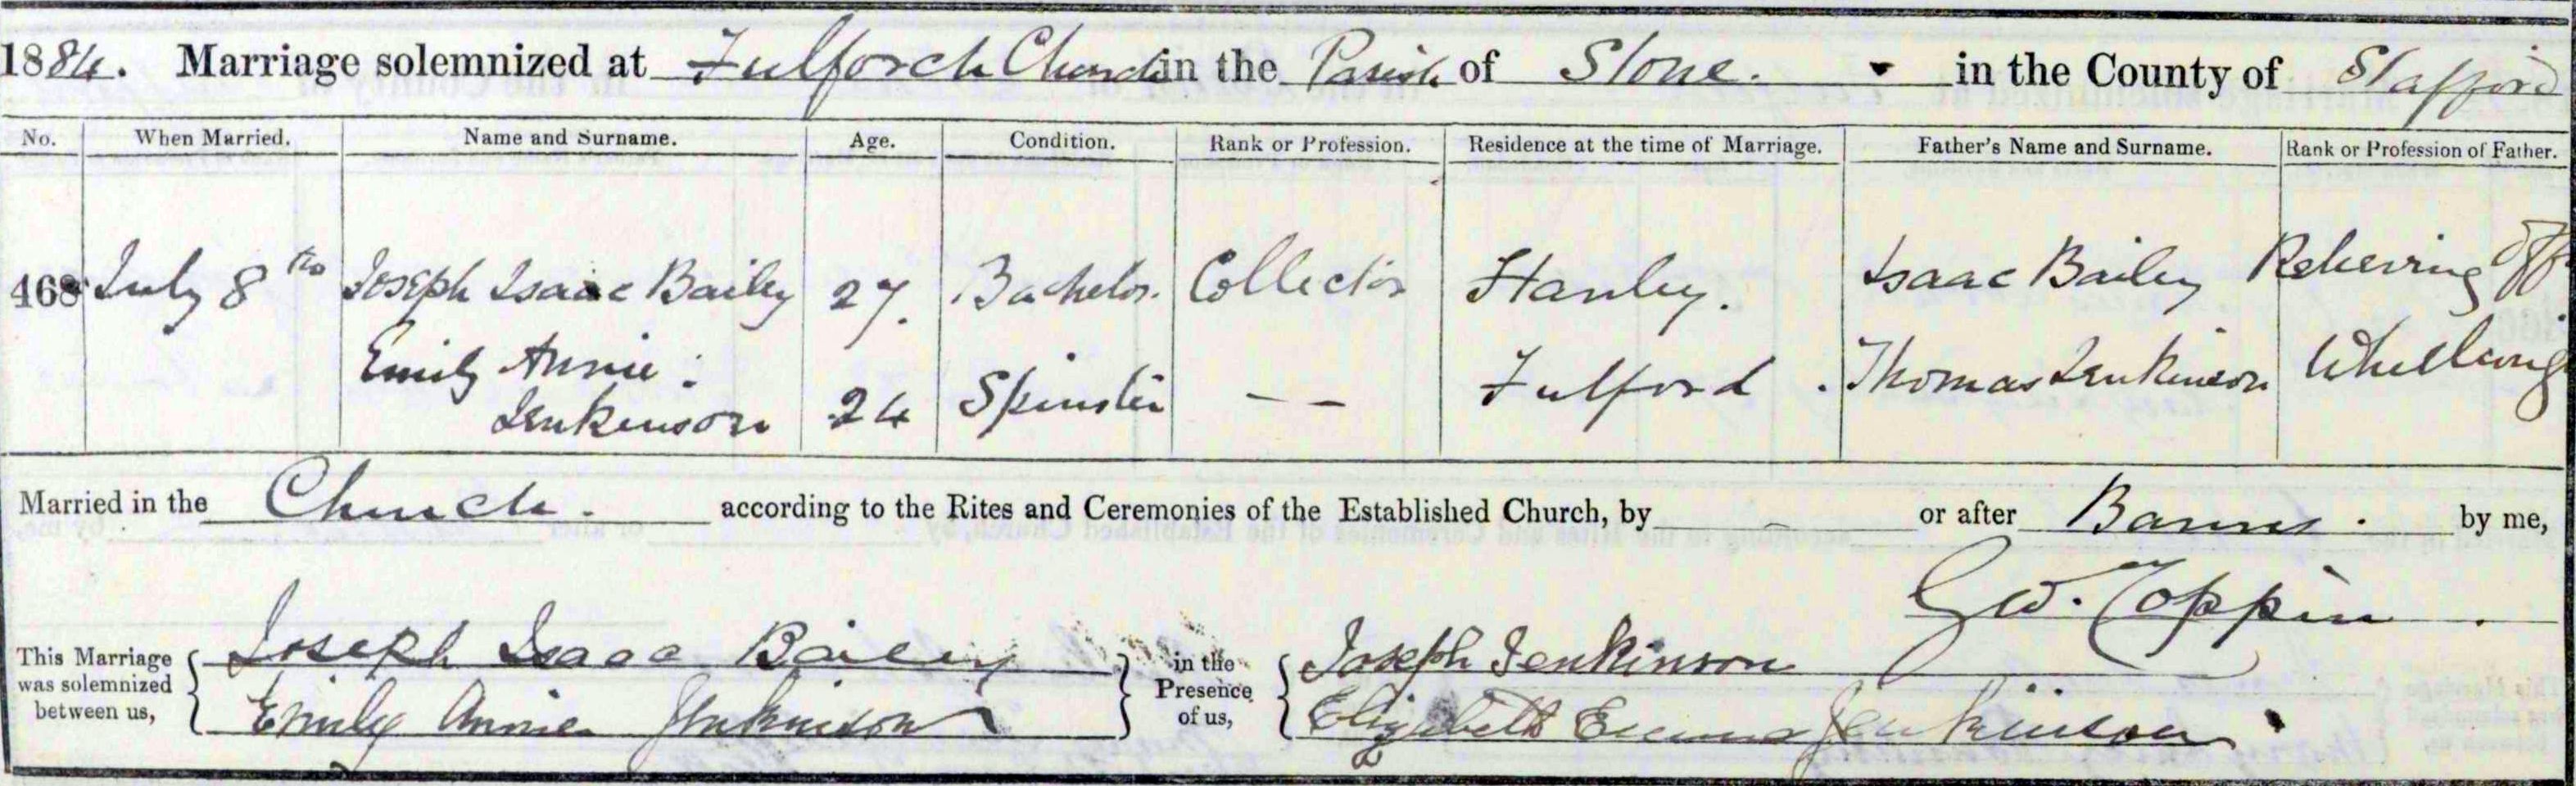 1884. Marriage solemnized at Fulford Church in the Parish of Stone. in the County of Stafford
No. When Married. Name and Surname. Age. Condition. Rank or Profession. Residence at the time of Marriage. Father's Name and Surname. Rank or Profession of Father.
468 July 8th Joseph Isaac Bailey 27. Bachelor. Collector Hanley. Isaac Bailey Relieving Off
Emily Annie
Jenkinson 24 Spinster — — Fulford . Thomas Jenkinson
Married in the Church. according to the Rites and Ceremonies of the Established Church, by — or after Banns. by me,
Geo. Toppin.
This Marriage was solemnized between us, Joseph Isaac Bailey in the Presence of us, Joseph Jenkinson
Emily Annie Jenkinson Elizabeth Emma Jenkinson